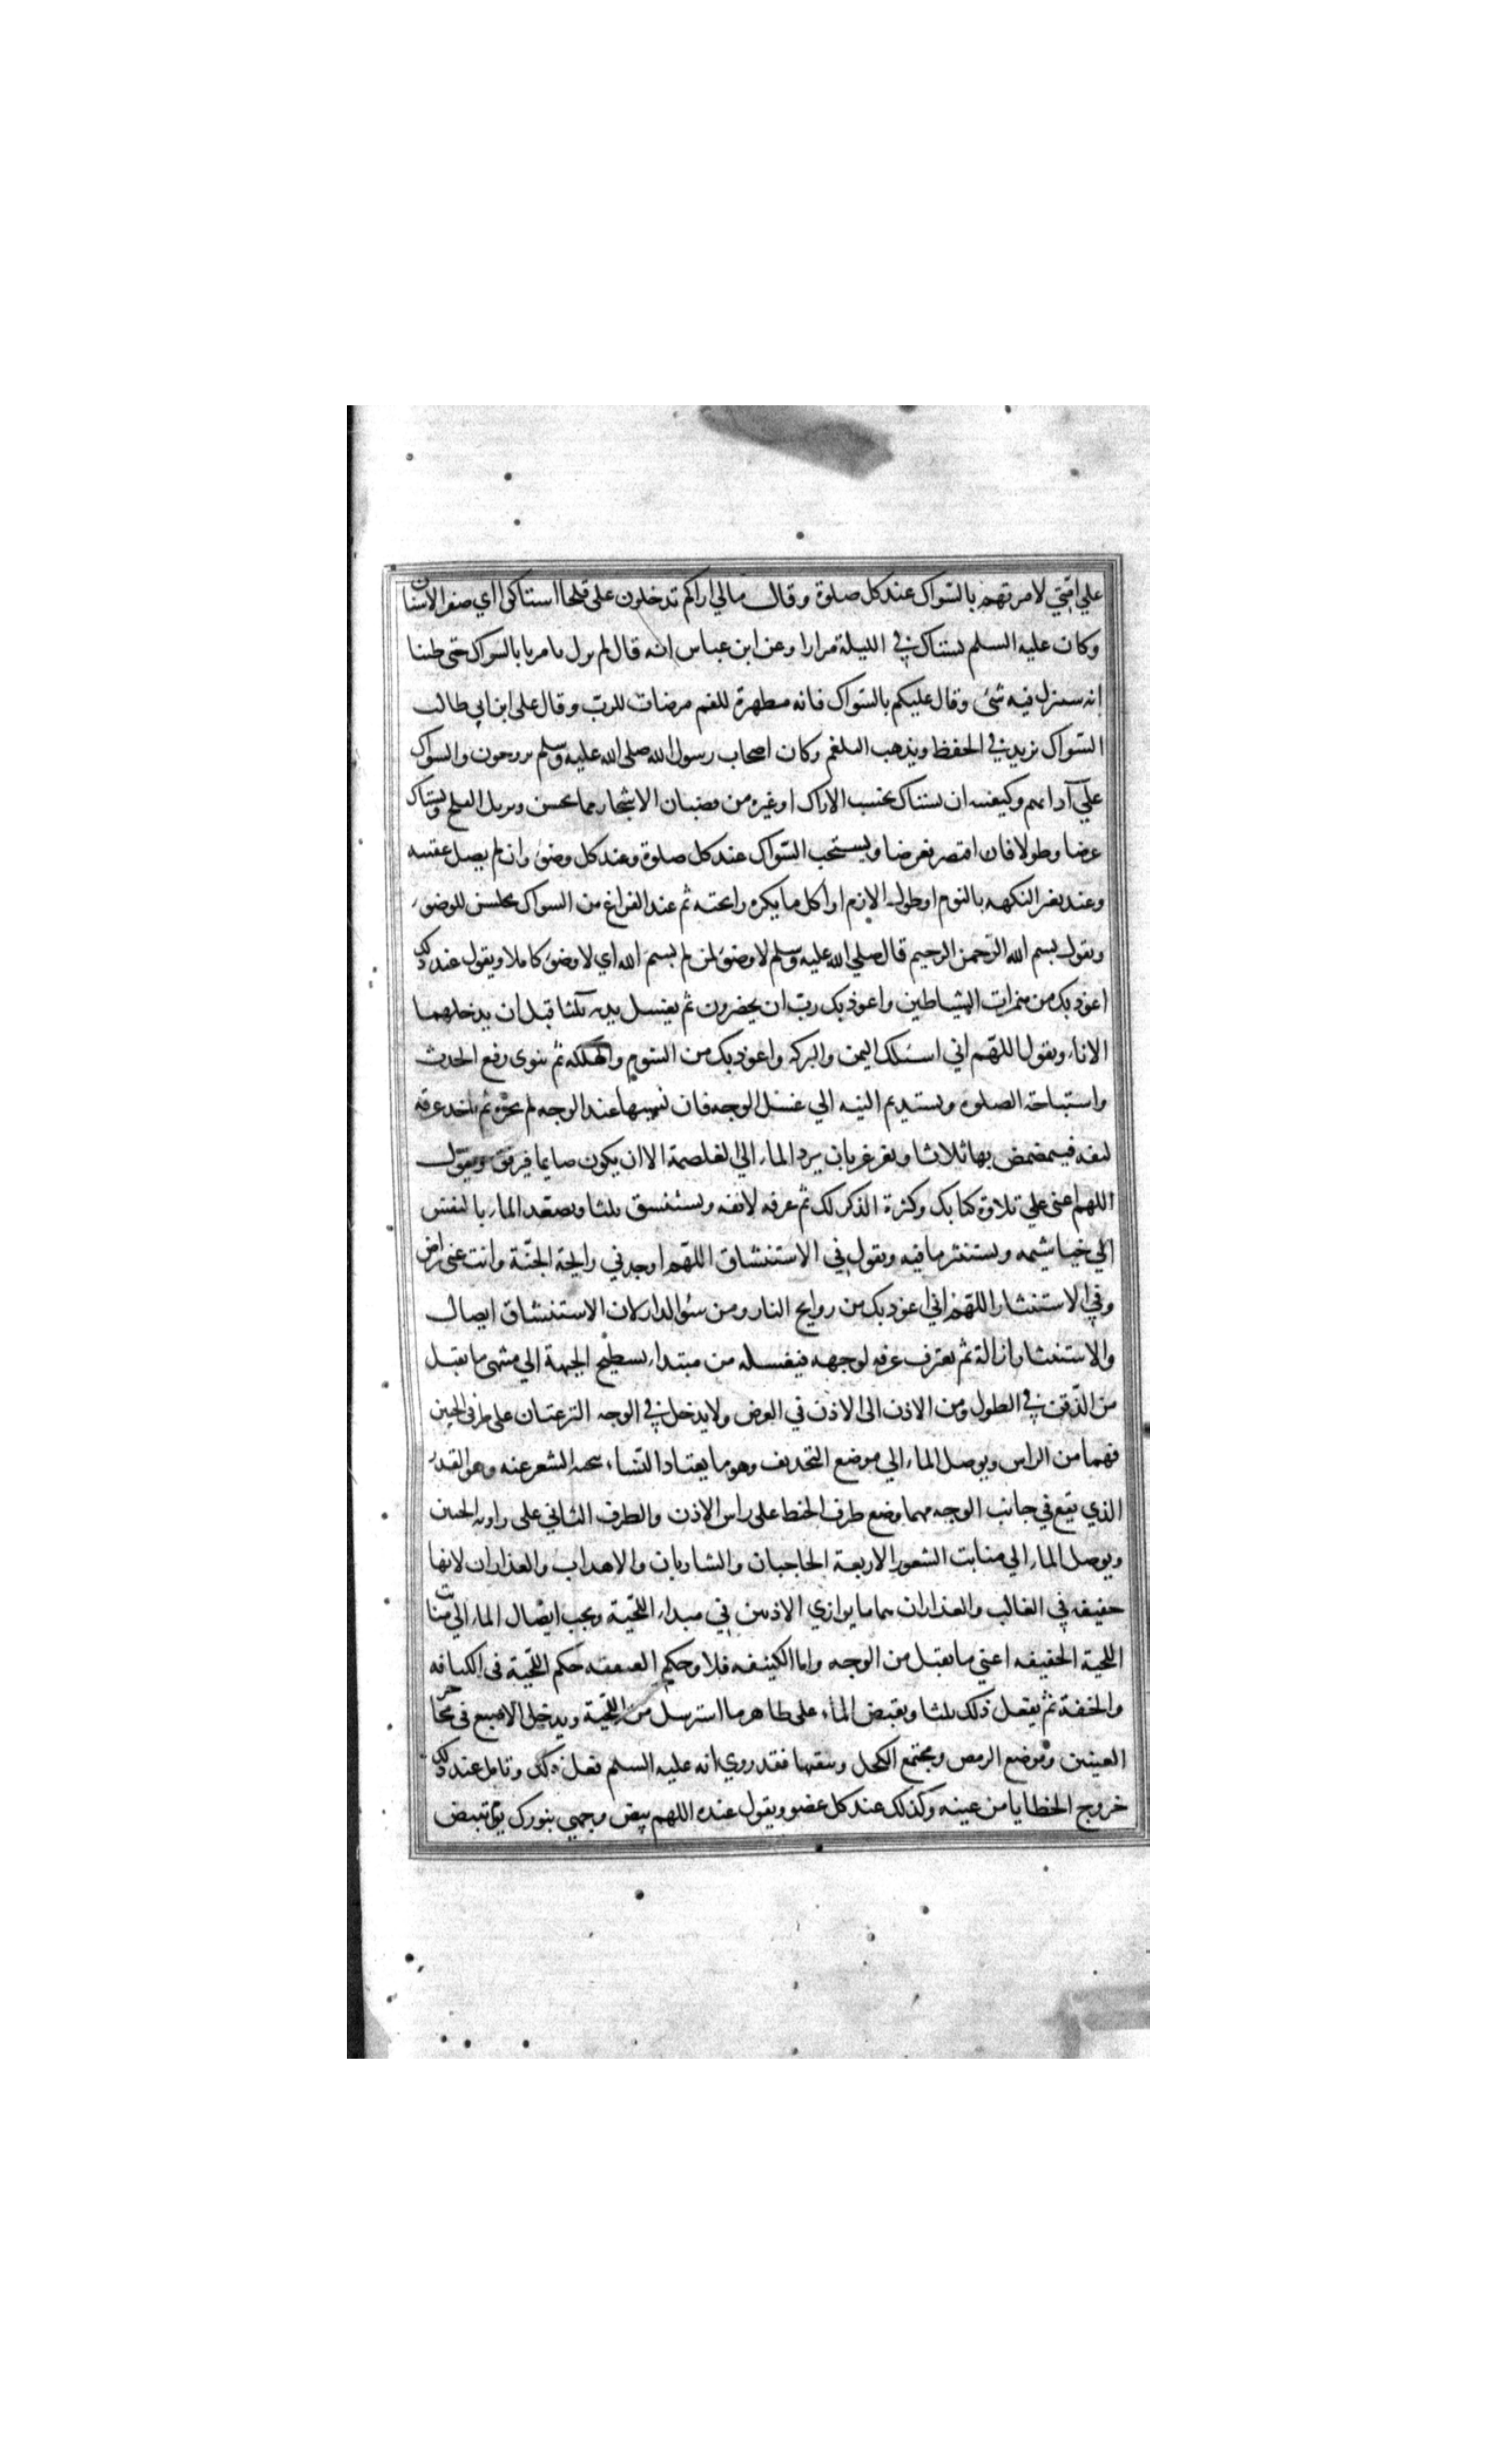 علي امتي لامرتهم بالسواك عند كل صلوة وقال مالي اراكم تدخلون على قلحا استاكوا اي صفر الاسنان
وكان عليه السلم يستاك في الليلة مرارا وعن ابن عباس انه قال لم يزل يامرنا بالسواك حتى ظننا
انه سينزل فيه شئ وقال عليكم بالسواك فانه مطهرة للفم مرضات للرب وقال على ابن ابي طالب
السواك يزيد في الحفظ ويذهب البلغم وكان اصحاب رسول الله صلى الله عليه وسلم يروحون والسواك
علي آذانهم وكيفيته ان يستاك بخشب الاراك او غيره من قضبان الاشجار مما يخشن ويزيل القلح ويستاك
عرضا وطولا فان اقتصر فعرضا ويستحب السواك عند كل صلوة وعند كل وضوء وان لم يصل عقيبه
وعند تغير النكهة بالنوم او طول الازم او اكل ما يكره رائحته ثم عند الفراغ من السواك يجلس للوضوء
ويقول بسم الله الرحمن الرحيم قال صلي الله عليه وسلم لا وضوء لمن لم يسم الله اي لا وضوء كاملا ويقول عند ذلك
اعوذ بك من همزات الشياطين واعوذ بك رب ان يحضرون ثم يغسل يديه ثلثا قبل ان يدخلهما
الاناء ويقول اللهم اني اسئلك اليمن والبركة واعوذ بك من الشوم والهلكة ثم ينوى رفع الحدث
واستباحة الصلوة ويستديم النية الي غسل الوجه فان نسيها عند الوجه لم يجزه ثم ياخذ غرفة
لفيه فيتمضمض بها ثلاثا ويغرغر بان يرد الماء الي الغلصمة الا ان يكون صايما فيرفق ويقول
اللهم اعني علي تلاوة كتابك وكثرة الذكر لك ثم غرفة لانفه ويستنشق ثلثا ويصعد الماء بالنفس
الي خياشيمه ويستنثر ما فيه ويقول في الاستنشاق اللهم اوجدني رايحة الجنة وانت عني راض
وفي الاستنثار اللهم اني اعوذ بك من روايح النار ومن سوء الدار لان الاستنشاق ايصال
والاستنثار ازالة ثم يغترف غرفة لوجهه فيغسله من مبتداء سطح الجبهة الي منتهى ما يقبل
من الذقن في الطول ومن الاذن الى الاذن في العرض ولا يدخل في الوجه النزعتان على طرفى الجبين
فهما من الراس ويوصل الماء الي موضع التحذيف وهو ما يعتاد النساء تنحية الشعر عنه وهو القدر
الذي يقع في جانب الوجه مهما وضع طرف الخيط على راس الاذن والطرف الثاني على زاوية الجبين
ويوصل الماء الي منابت الشعور الاربعة الحاجبان والشاربان والاهداب والعذاران لانها
خفيفة في الغالب والعذاران هما ما يوازي الاذنين في مبداء اللحية ويجب ايصال الماء الي منابت
اللحية الخفيفة اعني ما يقبل من الوجه واما الكثيفة فلا وحكم العنفقة حكم اللحية في الكثافة
والخفة ثم يفعل ذلك ثلثا ويفيض الماء على ظاهر ما استرسل من اللحية ويدخل الاصبع في محاجر
العينين وموضع الرمص ومجتمع الكحل وينقيها فقد روي انه عليه السلم فعل ذلك وتامل عند ذلك
خروج الخطايا من عينيه وكذلك عند كل عضو ويقول عنده اللهم بيض وجهي بنورك يوم تبيض